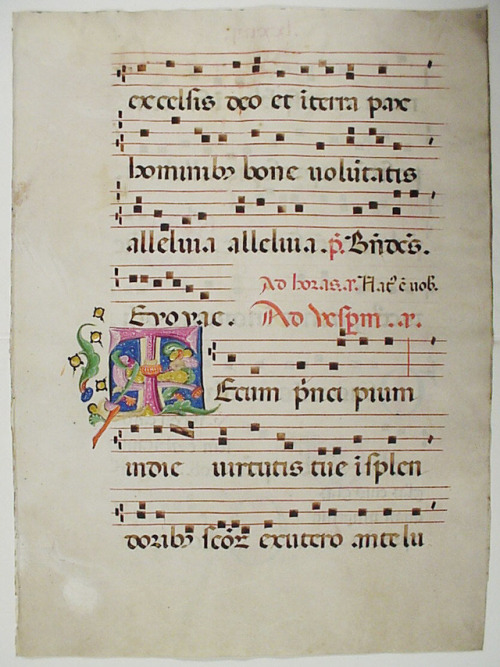 excelsis deo et ĩ terra pax
hominibꝫ bone uolũtatis
alleluia alleluia. p̃. Bñdcs̃.
Ad horas. añ. Nat᷒ ẽ uob.
Euouae. Ad vesp̃m. añ.
TEcum prĩcipium
in die uirtutis tue ĩ splen
doribꝫ scõꝝ ex utero ante lu